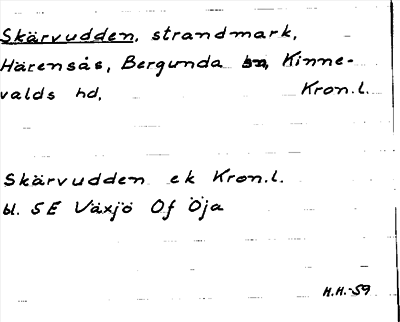 Skärvudden, strandmark,
Härensås, Bergunda sn, Kinne-
valds hd, Kron.l.
Skärvudden ek Kron.l.
bl. 5E Växjö Of Öja
H.H.-59